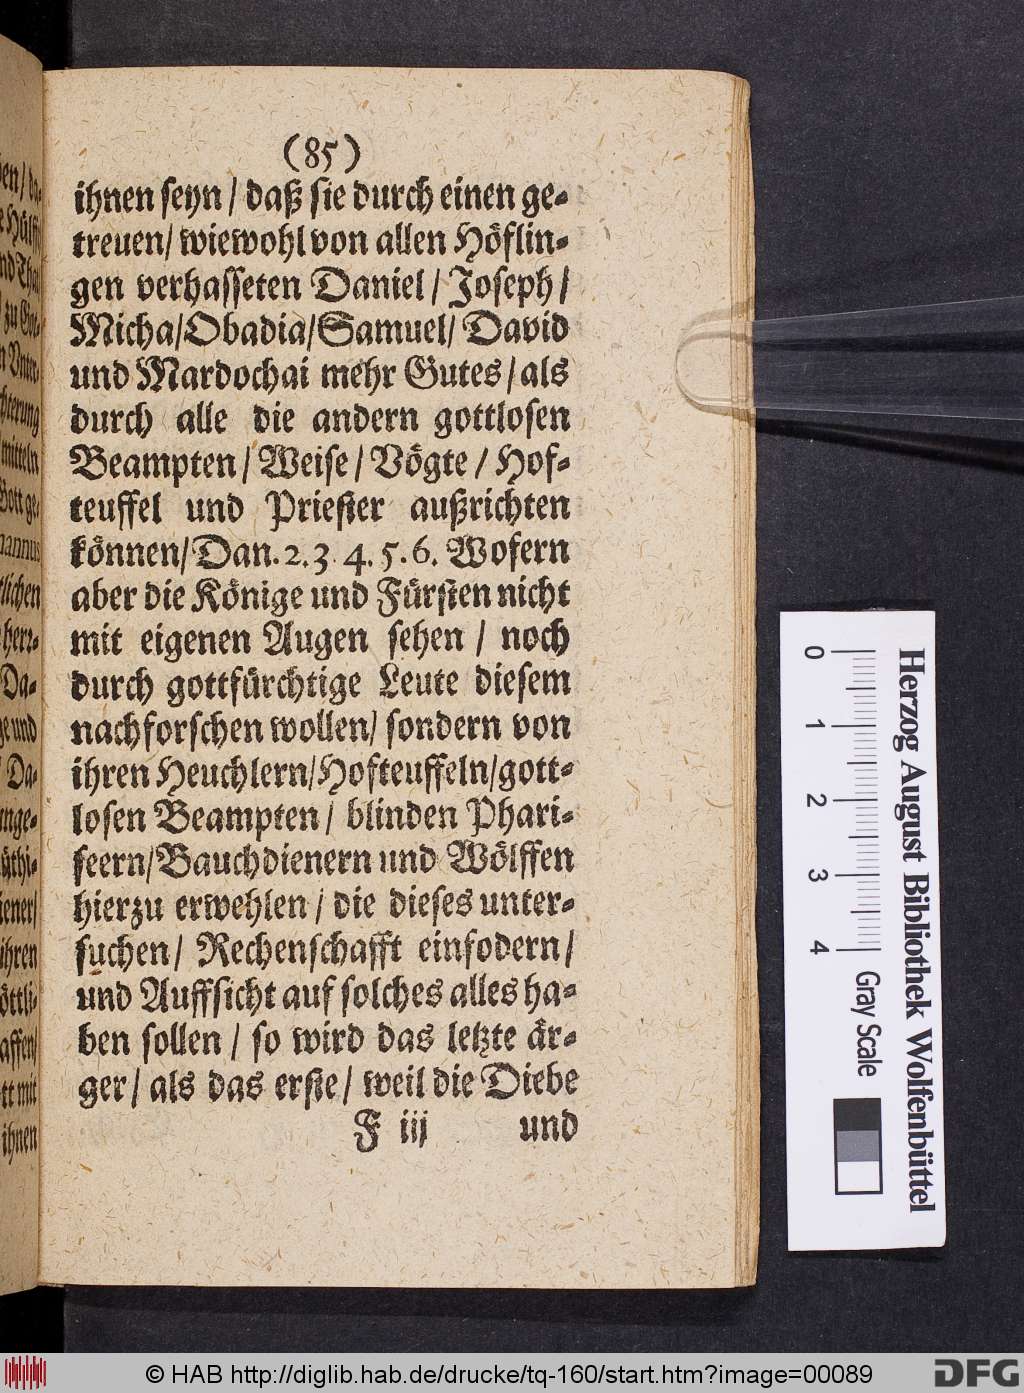 (85)
ihnen seyn / daß sie durch einen ge-
treuen / wiewohl von allen Höflin-
gen verhasseten Daniel / Joseph /
Micha / Obadia / Samuel / David
und Mardochai mehr Gutes / als
durch alle die andern gottlosen
Beampten / Weise / Vögte / Hof-
teuffel und Priester außrichten
können / Dan. 2. 3. 4. 5. 6. Wofern
aber die Könige und Fürsten nicht
mit eigenen Augen sehen / noch
durch gottfürchtige Leute diesem
nachforschen wollen / sondern von
ihren Heuchlern / Hofteuffeln / gott-
losen Beampten / blinden Phari-
seern / Bauchdienern und Wölffen
hierzu erwehlen / die dieses unter-
suchen / Rechenschafft einfodern /
und Auffsicht auf solches alles ha-
ben sollen / so wird das letzte är-
ger / als das erste / weil die Diebe
F iij und
0 1 2 3 4 Gray Scale
Herzog August Bibliothek Wolfenbüttel
© HAB http://diglib.hab.de/drucke/tq-160/start.htm?image=00089
DFG